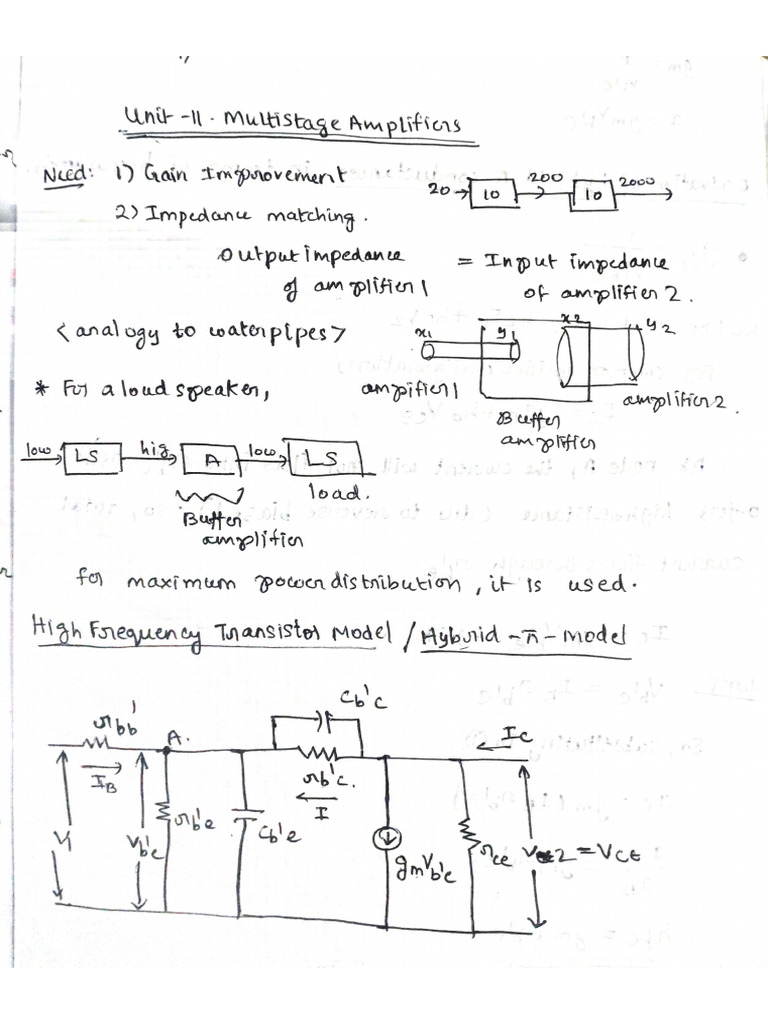 Unit -II. Multistage Amplifiers
Need: 1) Gain Improvement
20 → 10 200 → 10 2000 →
2) Impedance matching.
Output impedance = Input impedance
of amplifier 1 of amplifier 2.
<analogy to waterpipes>
x1 y1 x2 y2
* For a loud speaker,
ampifier 1
amplifier 2.
Buffer
amplifier
low LS hig A low LS
load.
Buffer
amplifier
for maximum power distribution, it is used.
High Frequency Transistor Model / Hybrid -π- model
Cb'c
rbb'
A.
Ic
IB
rb'c.
I
V1
Vb'e
rb'e
Cb'e
gmVb'e
rce
2 = VCE